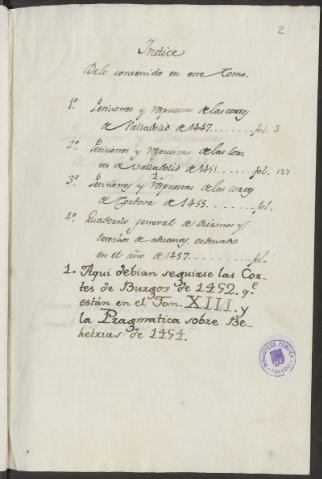 2
Indice
Delo contenido en este Tomo.
1º Peticiones y respuestas de las cortes
de Valladolid de 1447. . . . . . . . fol. 3
2º Peticiones y respuestas de las Cor-
tes de Valladolid de 1451. . . . . fol. 137
3º Peticiones y Respuestas de las cortes
de Cordova de 1455. . . . . . . fol.
4º Quaderno general de Diezmos y
derechos de aduanas, ordenado
en el año de 1457. . . . . . . fol.
1. Aqui debian seguirse las Cor-
tes de Burgos de 1452. q.e
están en el Tom. XIII. y
la Pragmatica sobre Be-
hetrias de 1454.
BIBLIOTECA PUBLICA
TOLEDO